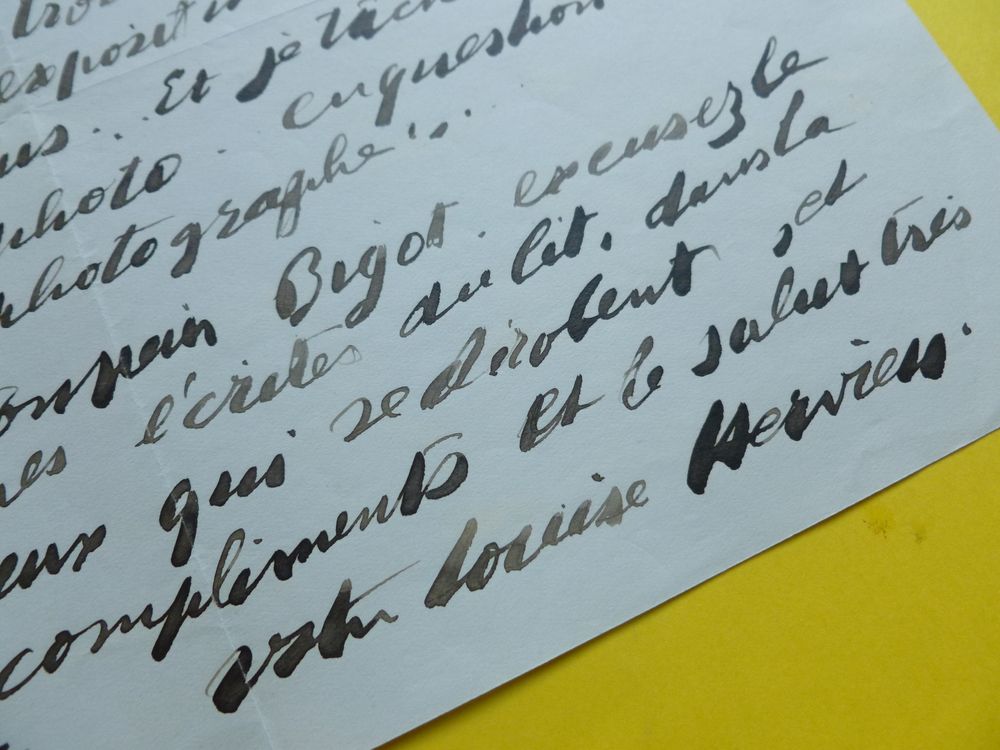 exposit
us... Et je tâch
photo. en question
photographe".
Romain Bigot. excusez le
écrites au lit, dans la
eux qui se dérobent, et
compliments et le salut très
votre Louise Hervieu.